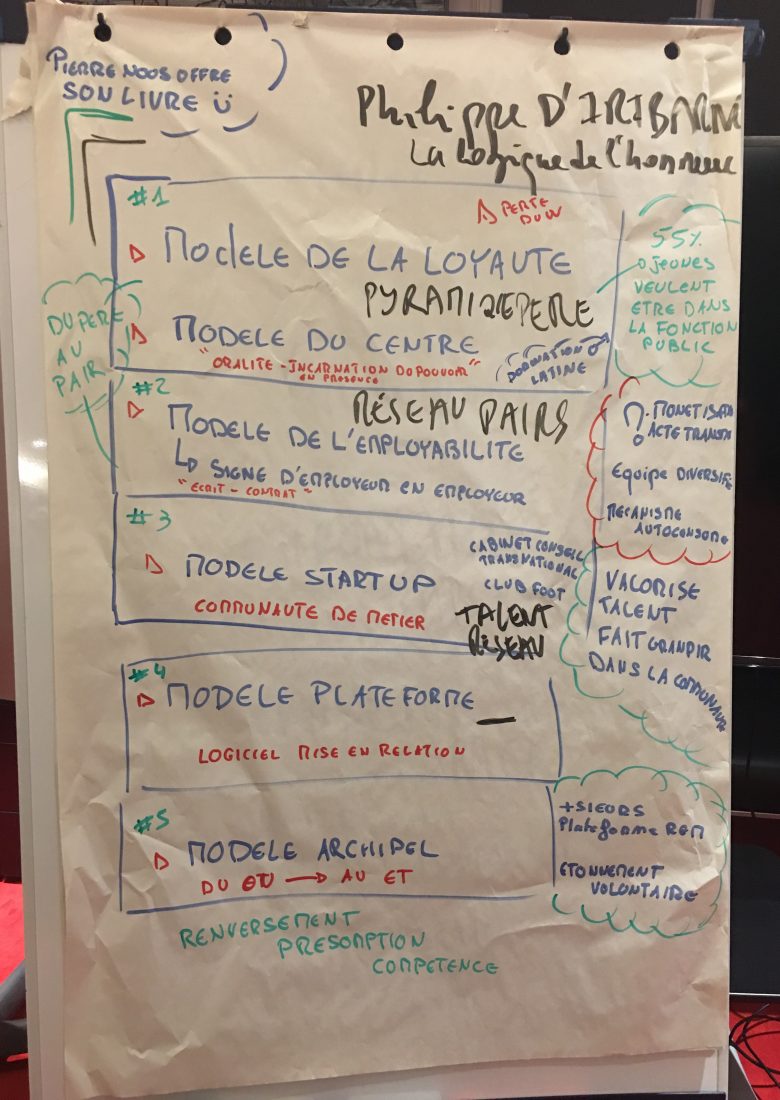 PIERRE NOUS OFFRE
SON LIVRE
Philippe D'IRIBARN
La Logique de l'honneur
#1
PERTE
MODELE DE LA LOYAUTE
PYRAMIDE PERE
MODELE DU CENTRE
"ORALITE - INCARNATION DU POUVOIR"
EN PRESENCE
DOMINATION
LATINE
55%
JEUNES
VEULENT
ETRE DANS
LA FONCTION
PUBLIC
DU PERE
AU
PAIR
#2
RÉSEAU PAIRS
MODELE DE L'EMPLOYABILITE
SIGNE D'EMPLOYEUR EN EMPLOYEUR
"ECRIT - CONTRAT"
?
ACTE
Equipe DIVERSIFIÉ
MECANISME
#3
CABINET CONSEIL
TRANSNATIONAL
MODELE STARTUP
CLUB FOOT
COMMUNAUTE DE METIER
TALENT
RÉSEAU
VALORISE
TALENT
FAIT GRANDIR
DANS LA COMMUNAUTE
#4
MODELE PLATEFORME
LOGICIEL MISE EN RELATION
#5
MODELE ARCHIPEL
DU OU → AU ET
+SIEURS
Plateforme
ETONNEMENT
VOLONTAIRE
RENVERSEMENT
PRESOMPTION
COMPETENCE